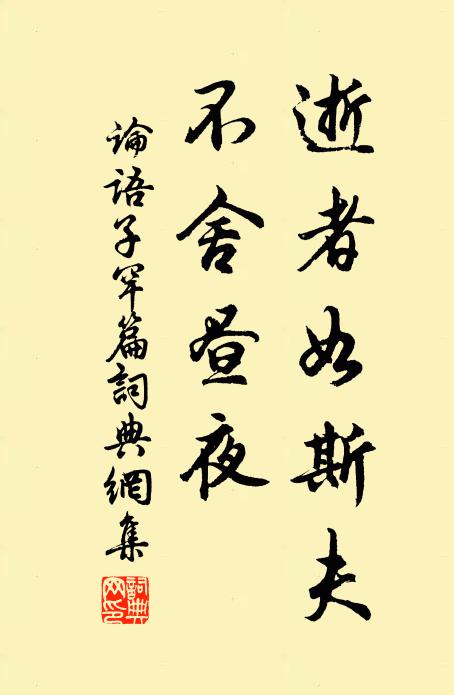 逝者如斯夫
不舍昼夜
論語子罕篇詞典網集
詞典网印